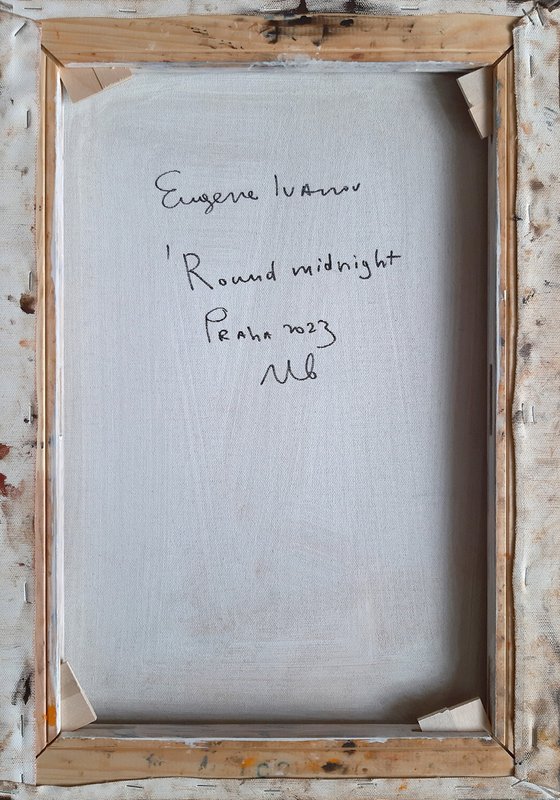 Eugene Ivanov
'Round midnight
Praha 2023
Ив